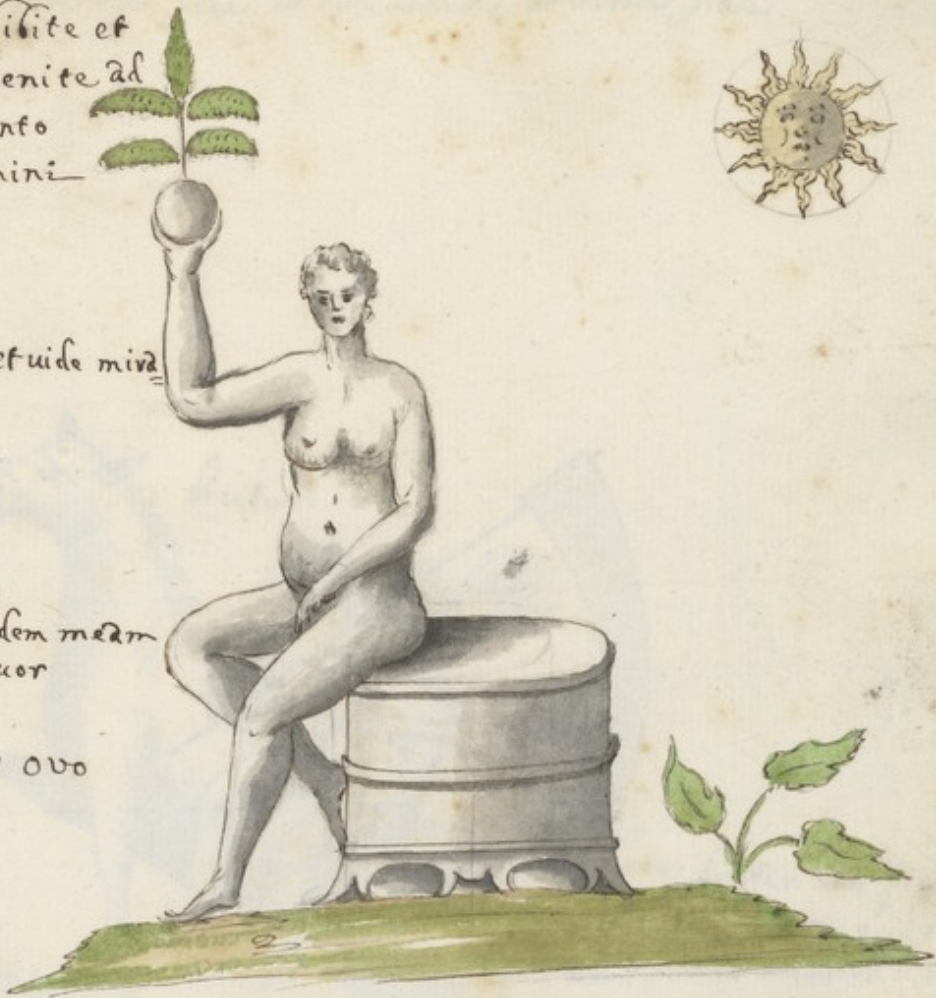 ibite et
enite ad
nto
mini
et uide mira
dem meam
uor
ovo